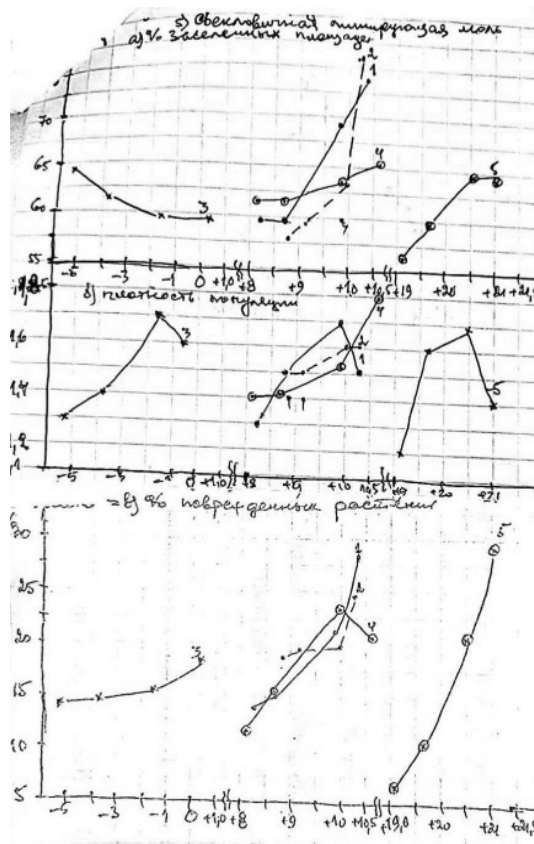 5) Свекловичная минирующая моль
а) % Заселенных площадей
2
1
70
65
4
5
60
3
55
-5 -3 -1 0 +1,0 +8 +9 +10 +10,5 +19 +20 +21 +21,5
б) плотность популяции
4
1,6
3
2
1
1,4
5
1,2
-5 -3 -1 0 +1,0 +8 +9 +10 +10,5 +19 +20 +21
в) % поврежденных растений
30
5
1
25
2
20
4
3
15
10
5
-5 -3 -1 0 +1,0 +8 +9 +10 +10,5 +19,0 +20 +21 +21,5